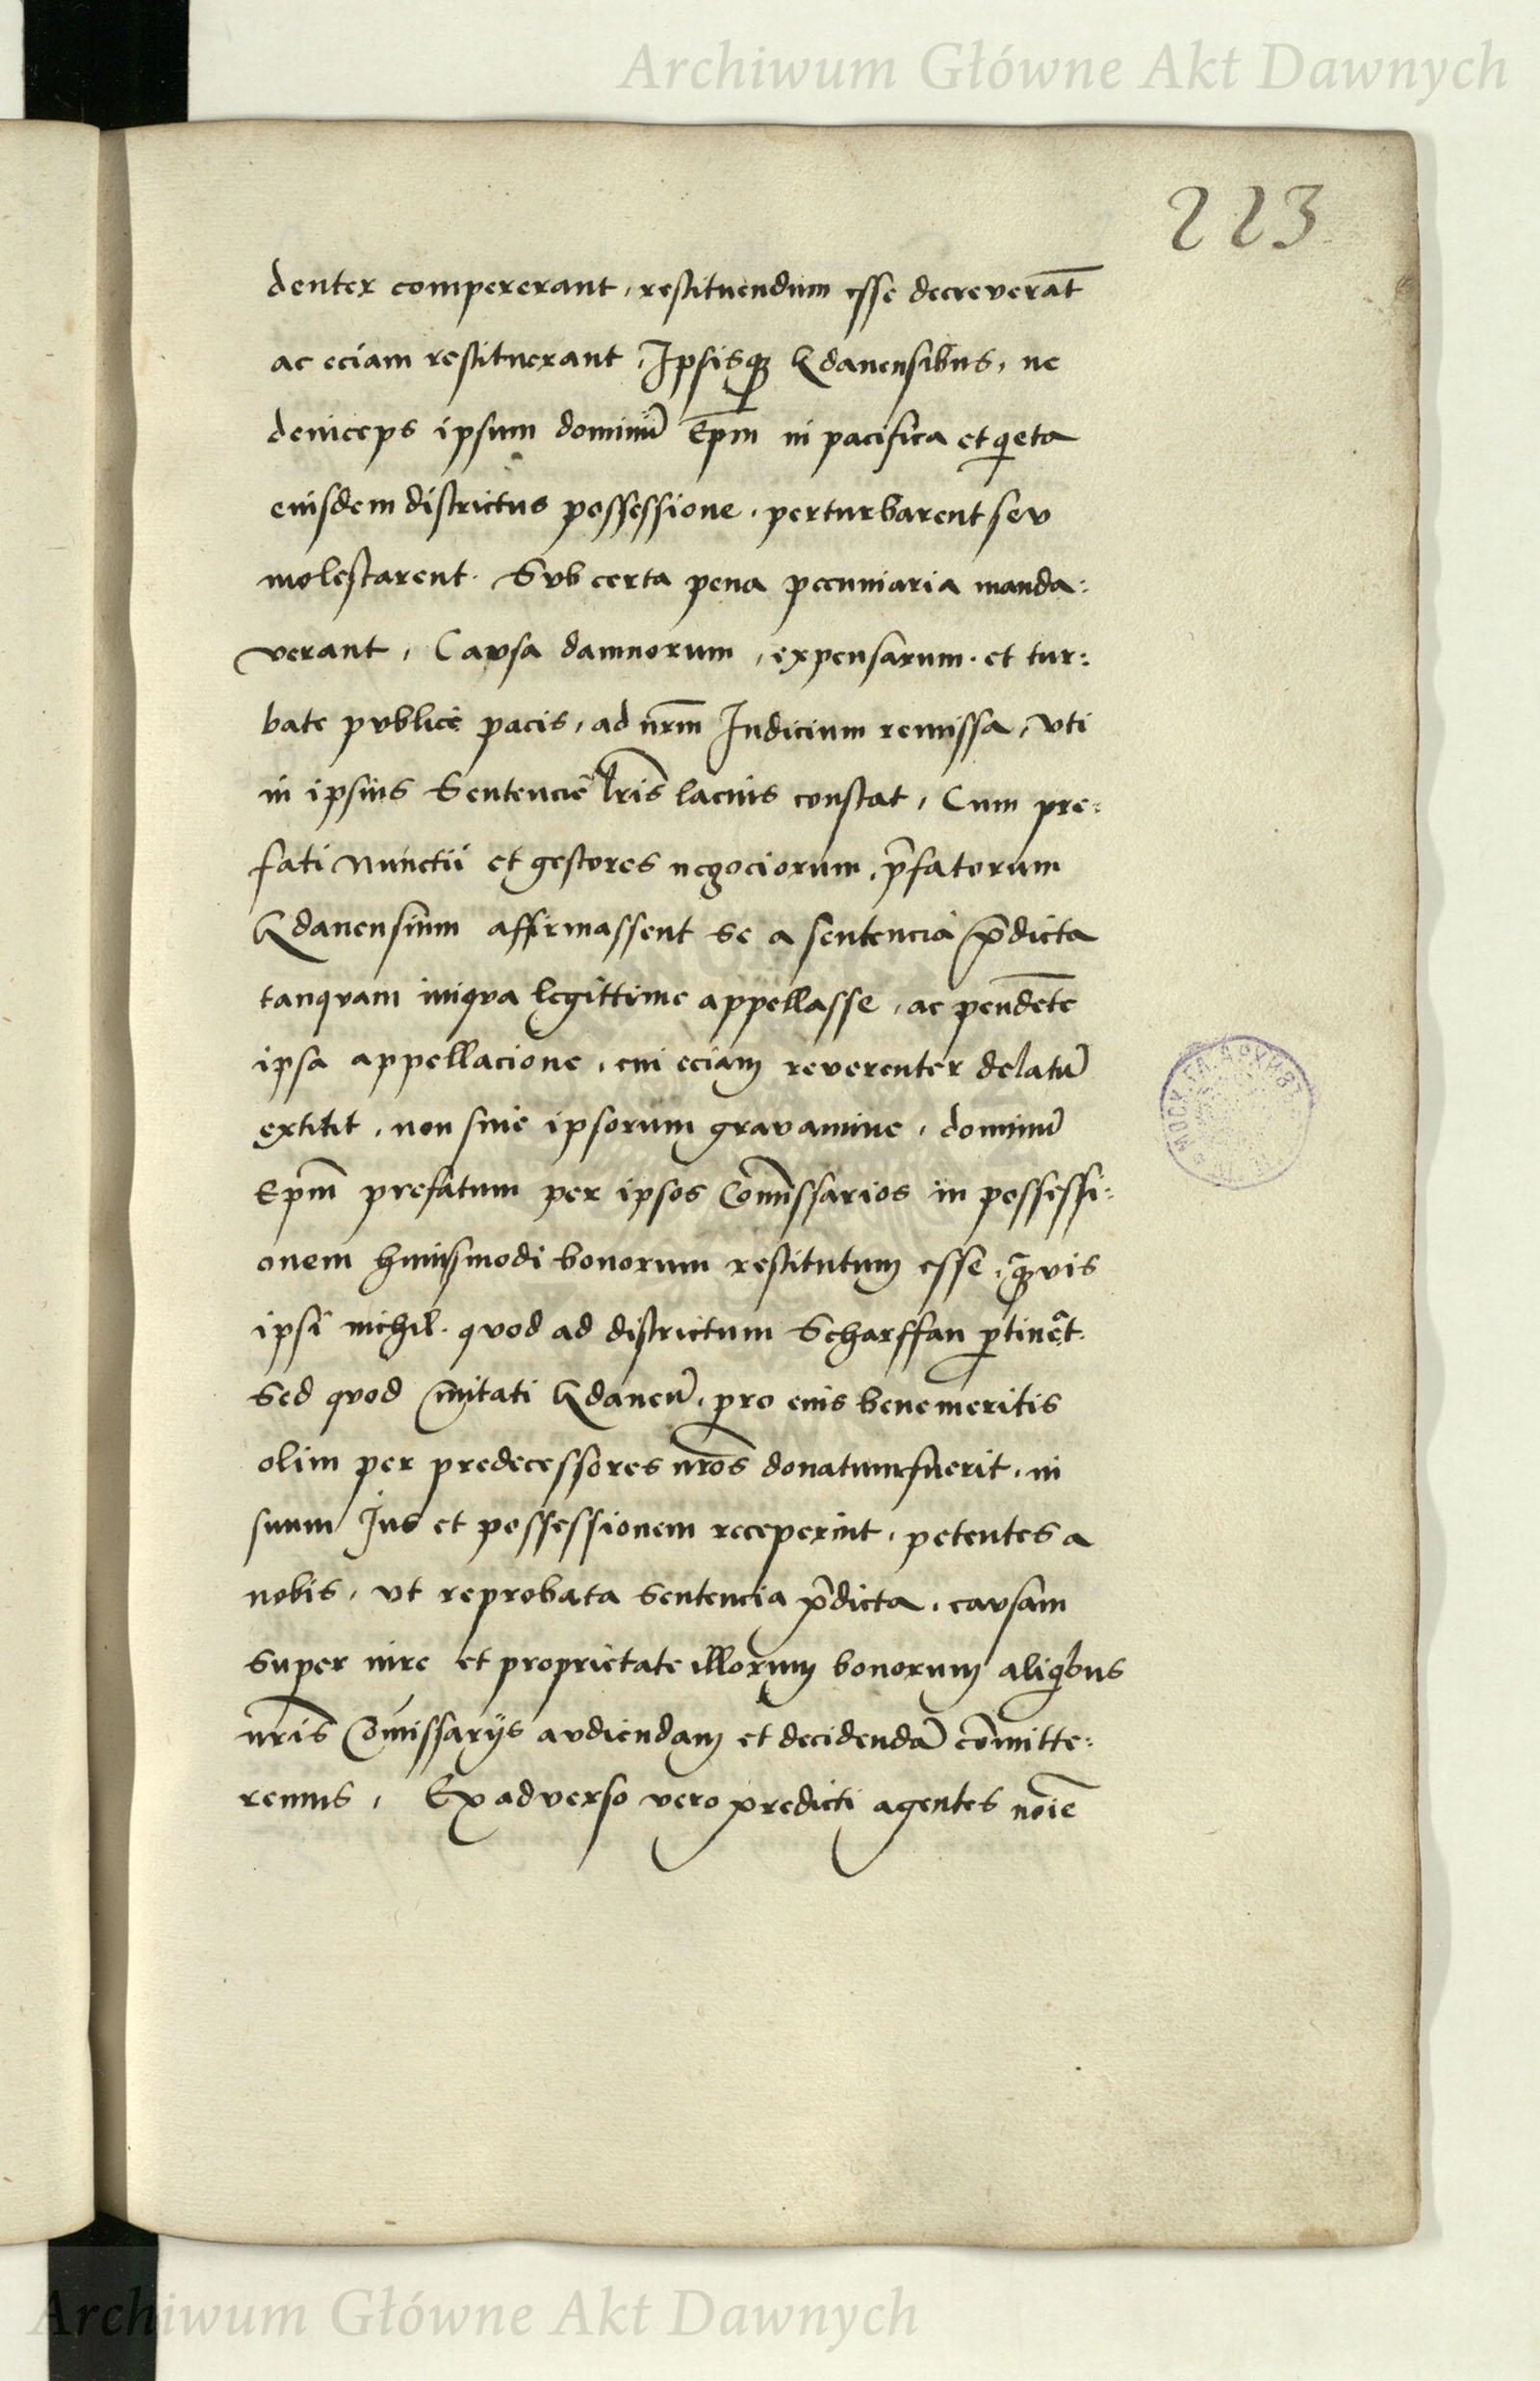 Archiwum Główne Akt Dawnych
223
denter compererant, restituendum esse decreverat̄
ac eciam restituerant, Ipsisqꝫ Gdanensibus, ne
deinceps ipsum dominū Ep̄m in pacifica et qieta
eiusdem districtus possessione, perturbarent sev
molestarent. Svb certa pena pecuniaria manda:
verant, Cavsa damnorum, expensarum. et tur:
bate pvblice pacis, ad nr̄m Iudicium remissa, vti
in ipsius Sentencie lr̄is lacius constat, Cum pre:
fati Nunctii et gestores negociorum, p̄fatorum
Gdanensium affirmassent se a sentencia p̄dicta
tanqvam iniqva legittime appellasse, ac pendēte
ipsa appellacione, cui eciam reverenter delatū
extitit, non sine ipsorum gravamine, dominū
Ep̄m prefatum per ipsos Com̄issarios in possessi:
onem huiusmodi bonorum restitutum esse, q̄ꝫvis
ipsi nichil. qvod ad districtum Scharffan ꝑtinēt.
Sed qvod Civitati Gdaneñ, pro eius benemeritis
olim per predecessores nr̄os donatum fuerit, in
suum Ius et possessionem receperint, petentes a
nobis, vt reprobata Sentencia p̄dicta, cavsam
super iure et proprietate illorum bonorum aliqibus
nr̄is Com̄issarijs avdiendam et decidendā com̄itte:
remus, Ex adverso vero predicti agentes noīe
Archiwum Główne Akt Dawnych